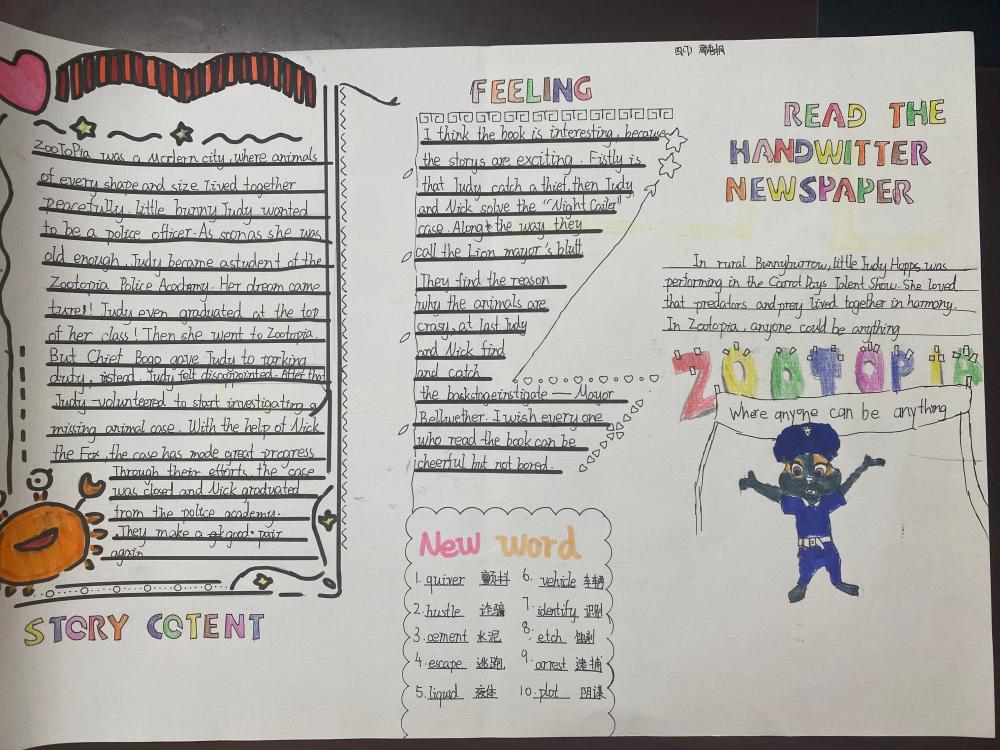 ZooToPia was a Modern city, where animals
of every shape and size lived together
peacefully. little bunny Judy wanted
to be a police officer. As soon as she was
old enough, Judy became a student of the
Zootopia Police Academy. Her dream came
ture!! Judy even graduated at the top
of her class! Then she went to Zootopia.
But Chief Bogo gave Judy to parking
duty, istead. Judy felt disappointed. After that
Judy volunteered to start investigating a
missing animal case. With the help of Nick
the Fox, the case has made great progress
Through their efforts, the case
was closed and Nick graduated
from the police academy.
They make a good pair
again
STORY COTENT
FEELING
I think the book is interesting, because
the storys are exciting. Fistly is
that Judy catch a thief, then Judy
and Nick solve the "Night Cailer"
case. Along the way they
call the Lion mayor's bluff
They find the reason
why the animals are
crasy, at last Judy
and Nick find
and catch
the backstageinstigate — Mayor
Bellwether. I wish every one
who read the book can be
cheerful but not bored.
New word
1. quiver 颤抖
2. hustle 诈骗
3. cement 水泥
4. escape 逃跑
5. liquid 液体
6. vehicle 车辆
7. identify 识别
8. etch 蚀刻
9. arrest 逮捕
10. plot 阴谋
READ THE
HANDWITTER
NEWSPAPER
In rural Bunnyburrow, little Judy Hopps was
performing in the Carrot Days Talent Show. She loved
that predators and prey lived together in harmony.
In Zootopia, anyone could be anything
ZOOTOPIA
Where anyone can be anything